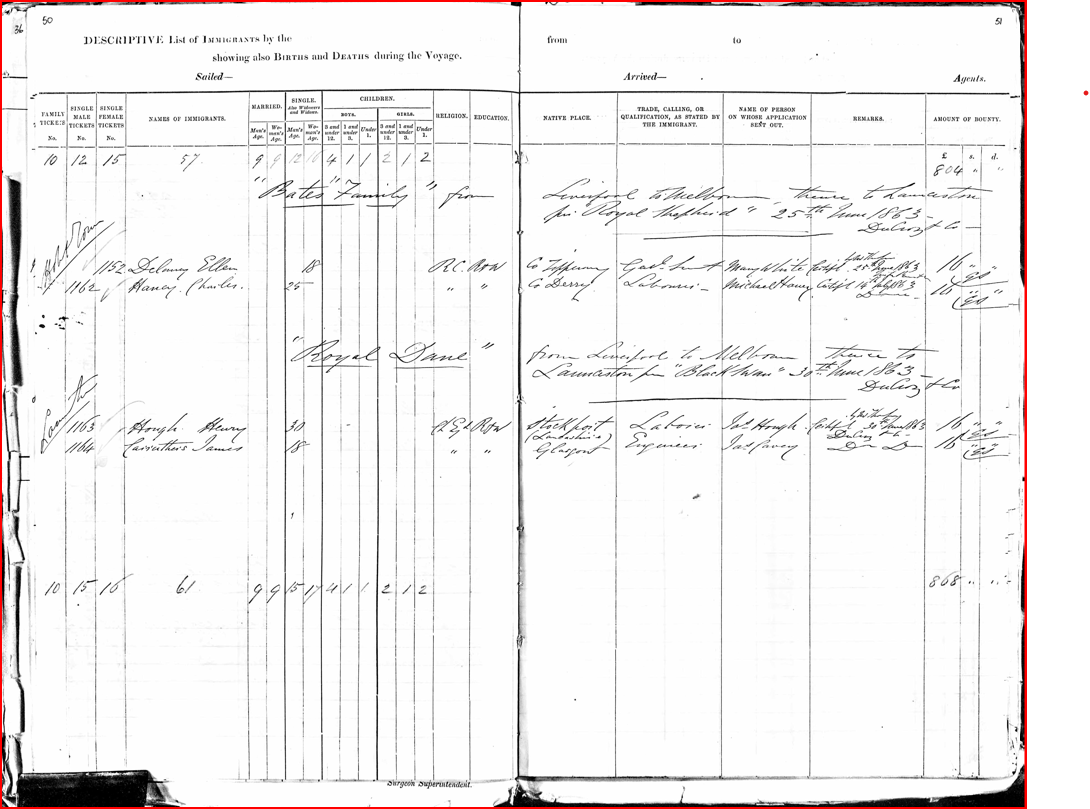 50
51
36
DESCRIPTIVE List of IMMIGRANTS by the from to
showing also BIRTHS and DEATHS during the Voyage.
Sailed— Arrived— Agents.
FAMILY TICKETS No. SINGLE MALE TICKETS No. SINGLE FEMALE TICKETS No. NAMES OF IMMIGRANTS. MARRIED. Man's Age. Woman's Age. SINGLE. Also Widowers and Widows. Man's Age. Woman's Age. CHILDREN. BOYS. 3 and under 12. 1 and under 3. Under 1. GIRLS. 3 and under 12. 1 and under 3. Under 1. RELIGION. EDUCATION. NATIVE PLACE. TRADE, CALLING, OR QUALIFICATION, AS STATED BY THE IMMIGRANT. NAME OF PERSON ON WHOSE APPLICATION SENT OUT. REMARKS. AMOUNT OF BOUNTY.
£ s. d.
10 12 15 57 9 9 12 16 4 1 1 2 1 2 804 " "
"Bates" Family" from Liverpool to Melbourn, thence to Launceston
per Royal Shepherd " 25th June 1863—
DuCroz & Co—
Hobt Town
1152 Delaney Ellen 18 R.C. ROW Co Tipperary Mary White 25th June 1863 16 " "
1162 Haney Charles. 25 " " Co Derry Labourer— Michael Haney 16 " "
"Royal Dane" from Liverpool to Melbourn thence to
Launceston per "Black Swan" 30th June 1863—
DuCroz & Co
1163 Hough Henry 30 Ch Egd ROW Stockport Laborer Jas Hough 30th June 1863 16 " "
(Lancashire) DuCroz & Co
1164 Carruthers James 18 " " Glasgow Engineer Jas Do Do 16 " "
10 15 16 61 9 9 15 17 4 1 1 2 1 2 868 " "
Surgeon Superintendent.